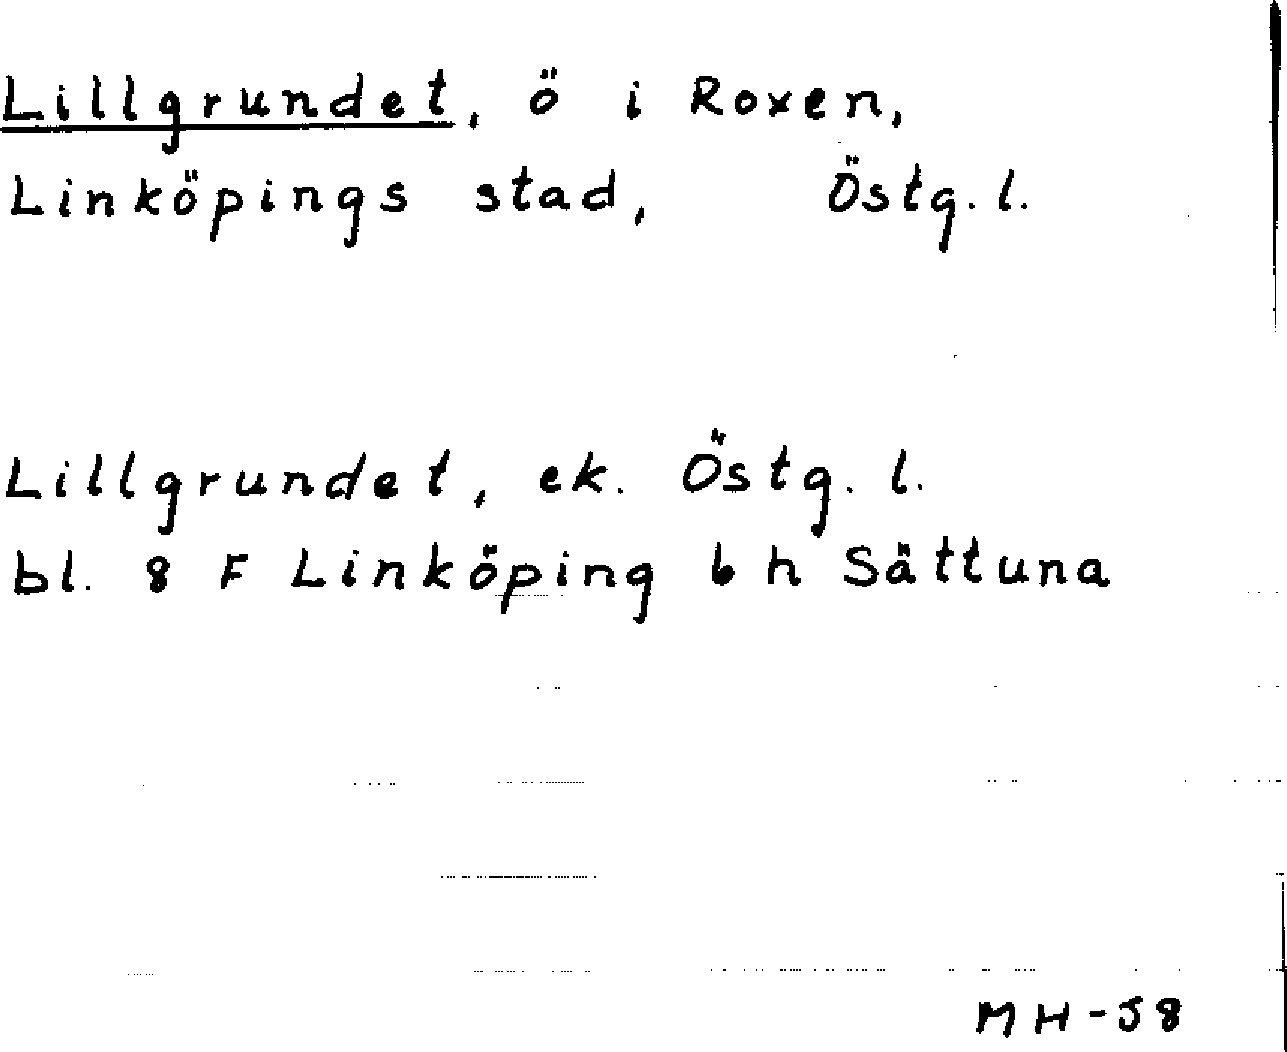 Lillgrundet, ö i Roxen,
Linköpings stad, Östg. l.
Lillgrundet, ek. Östg. l.
bl. 8 F Linköping 6 h Sättuna
MH-58